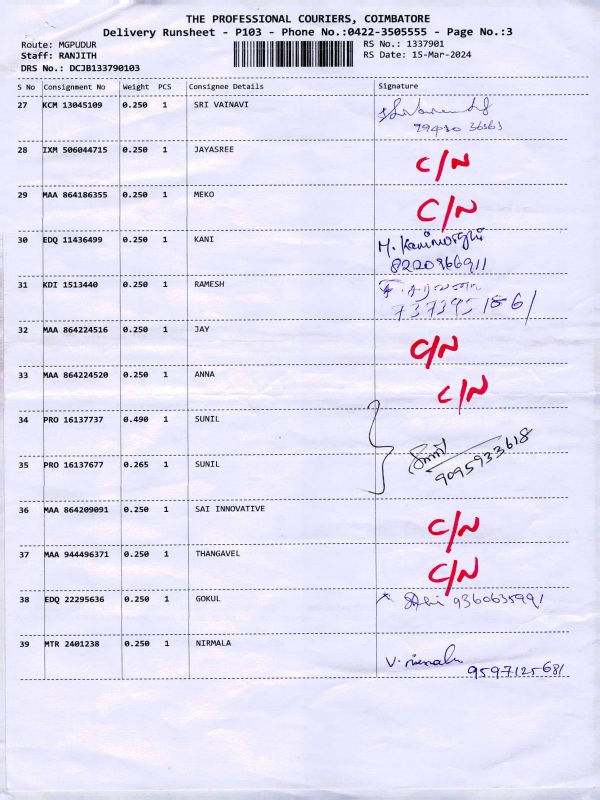 THE PROFESSIONAL COURIERS, COIMBATORE
Delivery Runsheet - P103 - Phone No.:0422-3505555 - Page No.:3
Route: MGPUDUR RS No.: 1337901
Staff: RANJITH RS Date: 15-Mar-2024
DRS No.: DCJB133790103
S No Consignment No Weight PCS Consignee Details Signature
27 KCM 13045109 0.250 1 SRI VAINAVI
28 IXM 506044715 0.250 1 JAYASREE C/N
29 MAA 864186355 0.250 1 MEKO C/N
30 EDQ 11436499 0.250 1 KANI M. Kanimozhi
8220866911
31 KDI 1513440 0.250 1 RAMESH
32 MAA 864224516 0.250 1 JAY C/N
33 MAA 864224520 0.250 1 ANNA C/N
34 PRO 16137737 0.490 1 SUNIL
35 PRO 16137677 0.265 1 SUNIL 9095933618
36 MAA 864209091 0.250 1 SAI INNOVATIVE C/N
37 MAA 944496371 0.250 1 THANGAVEL C/N
38 EDQ 22295636 0.250 1 GOKUL 9360635991
39 MTR 2401238 0.250 1 NIRMALA V. nirmala
9597125681